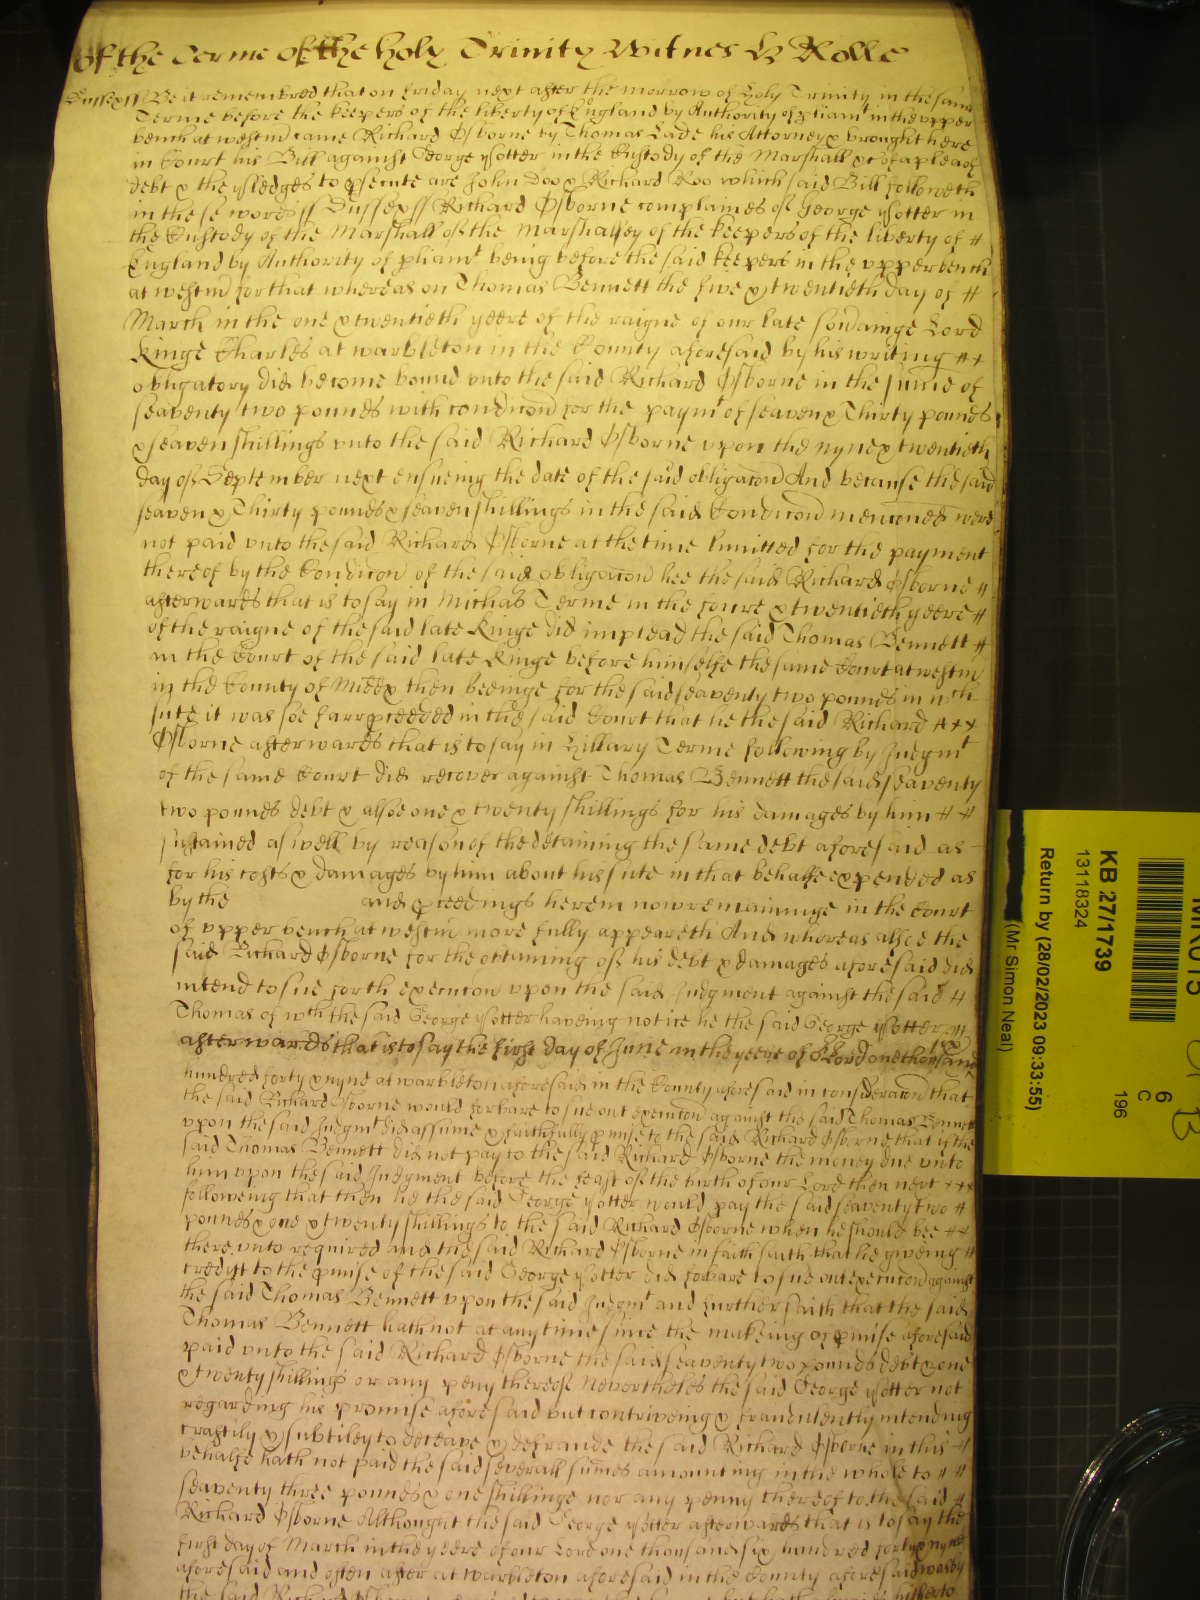 Of the Terme of the holy Trinity Witnes H Rolle
Sussex ss Be it remembred that on Friday next after the morrow of Holy Trinity in the same
Terme before the keepers of the liberty of England by Authority of pliamt in the upper
bench at westm came Richard Osborne by Thomas Eade his Attorney & brought here
in Court his Bill against George Potter in the Custody of the Marshall &c of a plea of
debt & the pledges to psecute are John Doo & Richard Roo which said Bill followeth
in these words ss Sussex ss Richard Osborne complaines of George Potter in
the Custody of the Marshall of the Marshalsey of the keepers of the liberty of #
England by Authority of pliamt being before the said keepers in the upper bench
at westm for that whereas on Thomas Bennett the five & twentieth day of #
March in the one & twentieth yeere of the raigne of our late sovaigne Lord
Kinge Charles at warbleton in the County aforesaid by his writing # +
obligatory did become bound unto the said Richard Osborne in the sume of
seaventy two pounds with condicon for the paymt of seaven & Thirty pounds
& seaven shillings unto the said Richard Osborne upon the nyne & twentieth
day of September next ensueing the date of the said obligacon And because the said
seaven & Thirty pounds & seaven shillings in the said Condicon menconed were
not paid unto the said Richard Osborne at the time limitted for the payment
thereof by the Condicon of the said obligacon hee the said Richard Osborne #
afterwards that is to say in Michas Terme in the foure & twentieth yeere #
of the raigne of the said late Kinge did implead the said Thomas Bennett #
in the Court of the said late Kinge before himselfe the same Court at westm
in the County of Middx then beeinge for the said seaventy two pounds in wch
sute it was soe farr pceeded in the said Court that he the said Richard + + +
Osborne afterwards that is to say in Hillary Terme following by Judgmt
of the same Court did recover against Thomas Bennett the said seaventy
two pounds debt & alsoe one & twenty shillings for his damages by him # #
sustained aswell by reason of the detaining the same debt aforesaid as
for his costs & damages by him about his sute in that behalfe expended as
by the and pceedings herein now remaininge in the Court
of upper bench at westm more fully appeareth And whereas alsoe the
said Richard Osborne for the obtaining of his debt & damages aforesaid did
intend to sue forth execucon upon the said Judgment against the said #
Thomas of wch the said George Potter haveing notice he the said George Potter
afterwards that is to say the first day of June in the yeere of or Lord one thousand six
hundred forty & nyne at warbleton aforesaid in the County aforesaid in consideracon that
the said Richard Osborne would forbare to sue out execucon against the said Thomas Bennett
upon the said Judgmt did assume & faithfully pmise to the said Richard Osborne that if the
said Thomas Bennett did not pay to the said Richard Osborne the money due unto
him upon the said Judgment before the feast of the birth of our Lord then next + + +
following that then he the said George Potter would pay the said seaventy two #
pounds & one & twenty shillings to the said Richard Osborne when he should bee # #
there unto required and the said Richard Osborne in faith saith that he giveing #
credytt to the pmise of the said George Potter did forbare to sue out execucon against
the said Thomas Bennett upon the said Judgmt and further saith that the said
Thomas Bennett hath not at any time since the makeing of pmise aforesaid
paid unto the said Richard Osborne the said seaventy two pounds debt & one
& twenty shillings or any peny thereof Neverthelesse the said George Potter not
regarding his promise aforesaid but contriveing & fraudulently intending
craftily & subtiley to deceave & defraude the said Richard Osborne in this #
behalfe hath not paid the said severall sumes amounting in the whole to # #
seaventy three pounds & one shillinge nor any penny thereof to the said #
Richard Osborne Althought the said George Potter afterwards that is to say the
first day of March in the yeere of our Lord one thousand six hundred forty & nyne
aforesaid and often after at warbleton aforesaid in the County aforesaid was by
the said Richard
KB 27/1739
13118324
Return by (28/02/2023 09:33:55)
(Mr Simon Neal)
6
C
196